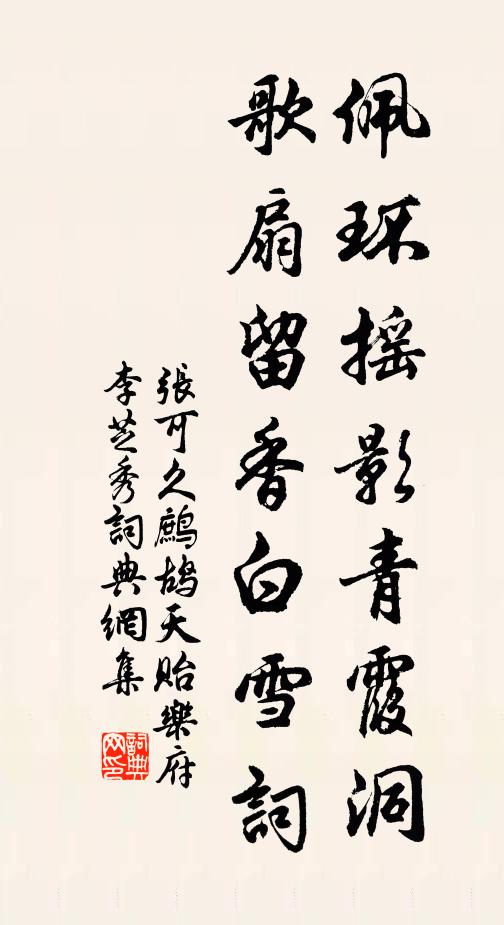 佩環摇影青霞洞
歌扇留香白雪詞
張可久鷓鴣天貽樂府
李芝秀詞典網集
詞典
网印